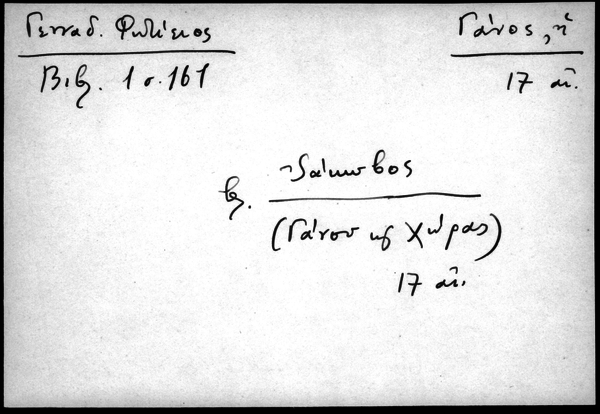 Γενναδ. Φωτίειος
Γάνος, ἡ
Βιβ. 1 σ. 161
17 αἰ.
Ἰάκωβος
βλ.
(Γάνου κ Χώρας)
17 αἰ.